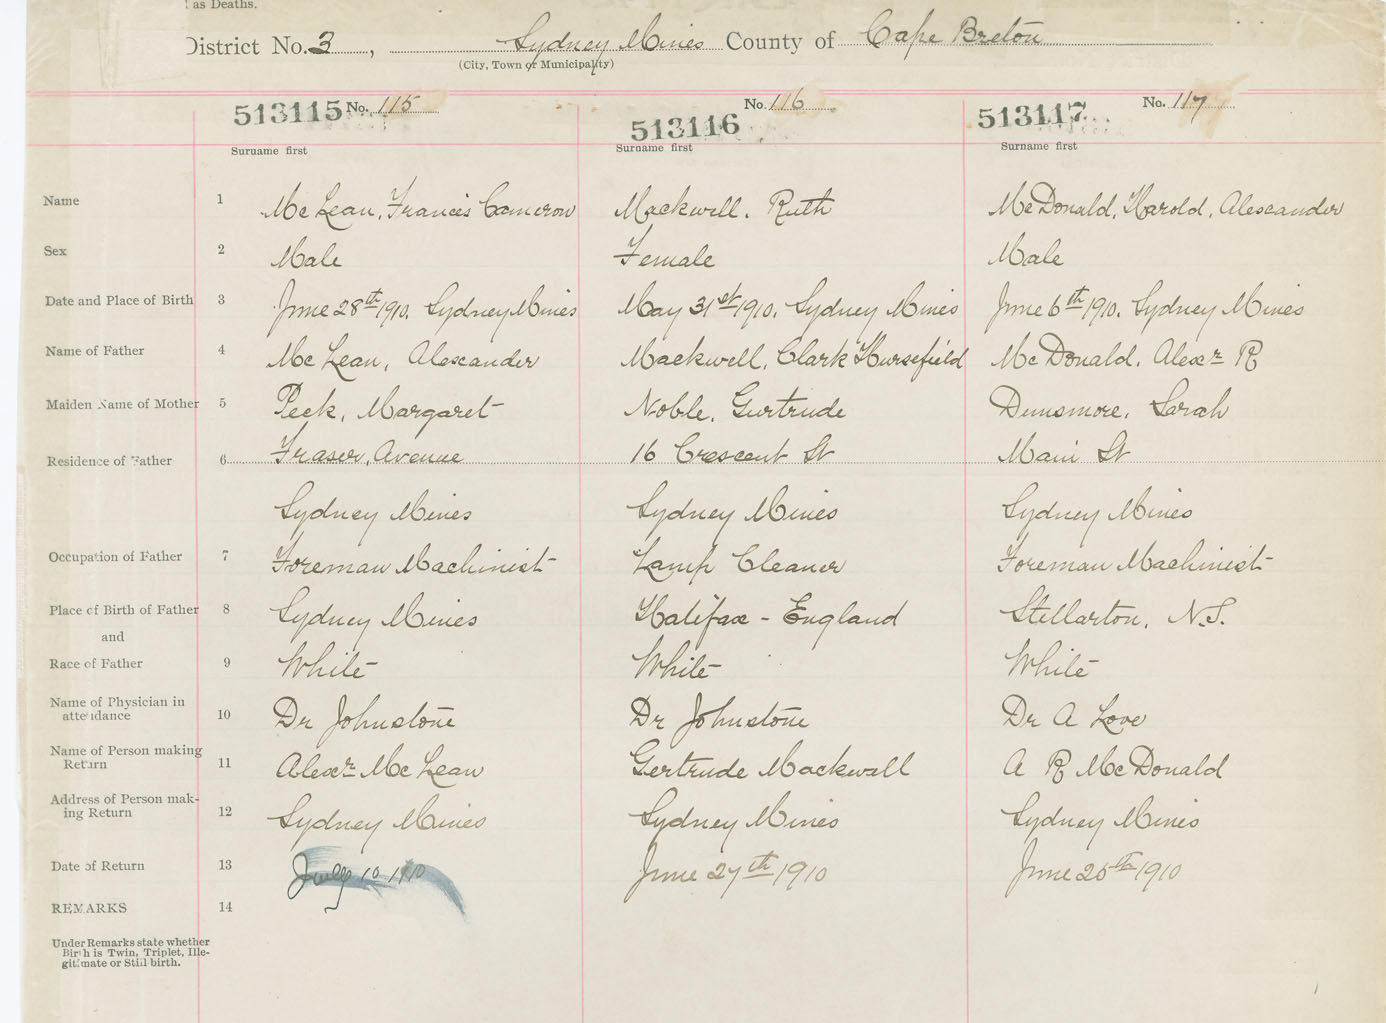 as Deaths.
District No. 3, Sydney Mines County of Cape Breton
(City, Town or Municipality)
513115 No. 115 513116 No. 116 513117 No. 117
Surname first Surname first Surname first
Name 1 McLean, Francis Cameron Mackwell, Ruth McDonald, Harold, Alexander
Sex 2 Male Female Male
Date and Place of Birth 3 June 28th 1910, Sydney Mines May 31st 1910, Sydney Mines June 6th 1910, Sydney Mines
Name of Father 4 McLean, Alexander Mackwell, Clark Hursefield McDonald, Alexr R
Maiden Name of Mother 5 Peck, Margaret Noble, Gurtrude Dunsmore, Sarah
Residence of Father 6 Fraser, Avenue 16 Crescent St Main St
Sydney Mines Sydney Mines Sydney Mines
Occupation of Father 7 Foreman Machinist Lamp Cleaner Foreman Machinist
Place of Birth of Father 8 Sydney Mines Halifax - England Stellarton, N.S.
and
Race of Father 9 White White White
Name of Physician in
attendance 10 Dr Johnstone Dr Johnstone Dr A Love
Name of Person making
Return 11 Alexr McLean Gertrude Mackwall A R McDonald
Address of Person mak-
ing Return 12 Sydney Mines Sydney Mines Sydney Mines
Date of Return 13 July 10 1910 June 27th 1910 June 25th 1910
REMARKS 14
Under Remarks state whether
Birth is Twin, Triplet, Ille-
gitimate or Still birth.